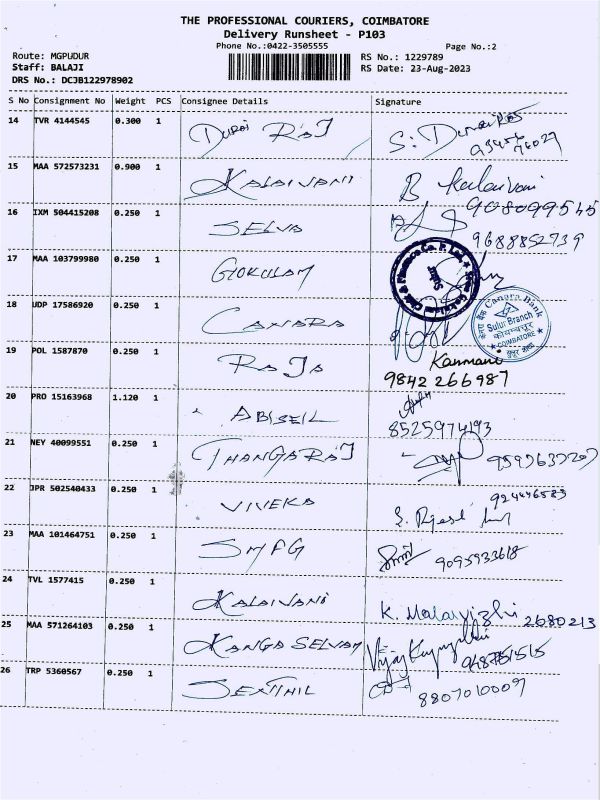 THE PROFESSIONAL COURIERS, COIMBATORE
Delivery Runsheet - P103
Phone No.:0422-3505555
Page No.:2
Route: MGPUDUR
RS No.: 1229789
Staff: BALAJI
RS Date: 23-Aug-2023
DRS No.: DCJB122978902
S No Consignment No Weight PCS Consignee Details Signature
14 TVR 4144545 0.300 1 DURAI RAJ
15 MAA 572573231 0.900 1 KALAIVANI B Kalaivani
16 IXM 504415208 0.250 1 SELVA 9688852739
17 MAA 103799980 0.250 1 GOKULAM
18 UDP 17586920 0.250 1 CANARA
Canara Bank
Sulur Branch
COIMBATORE
19 POL 1587870 0.250 1 RAJA Kanmani
9842 266987
20 PRO 15163968 1.120 1 ABISEIL
8525974193
21 NEY 40099551 0.250 1 THANGARAJ
22 JPR 502540433 0.250 1 VIVEKA
23 MAA 101464751 0.250 1 SMFG 9095933618
24 TVL 1577415 0.250 1 KALAIVANI K. Malarvizhi 2680213
25 MAA 571264103 0.250 1 KANGA SELVAM
26 TRP 5360567 0.250 1 SENTHIL 8807010009